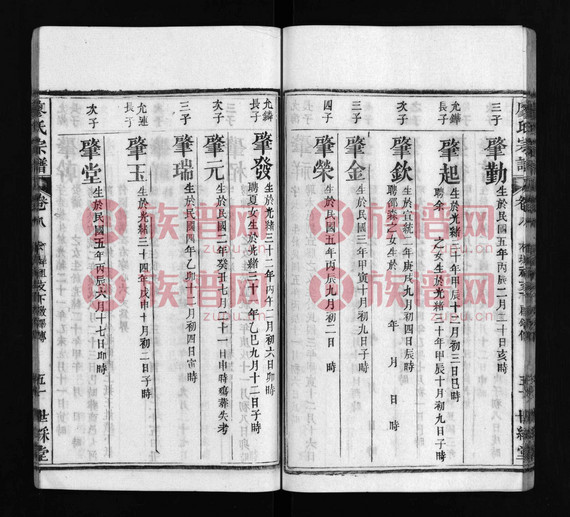 三子
肇勳
生於民國五年丙辰二月二十日亥時
允鏵長子
肇起
生於光緒三十年甲辰十二月初三日巳時
聘余 之女生於光緒三十年甲辰十月初九日子時
次子
肇欽
生於宣統二年庚戌九月初四日辰時
之女生於 年 月 日 時
三子
肇金
生於民國三年甲寅十月初九日子時
四子
肇榮
生於民國 年 九月初二日 時
允鏻長子
肇發
生於光緒三十二年丙午二月初六日卯時
聘夏 女生於光緒三十一年乙巳九月十二日子時
次子
肇元
生於民國二年癸丑七月二十一日申時殤葬失考
三子
肇瑞
生於民國四年乙卯十二月初四日寅時
允連長子
肇玉
生於光緒三十四年戊申十月初二日子時
次子
肇堂
生於民國五年丙辰六月十七日卯時
廖氏宗譜
卷八
五一
世綵堂
族谱网
zupu.cn
族谱网
zupu.cn
族谱网
zupu.cn
族谱网
zupu.cn